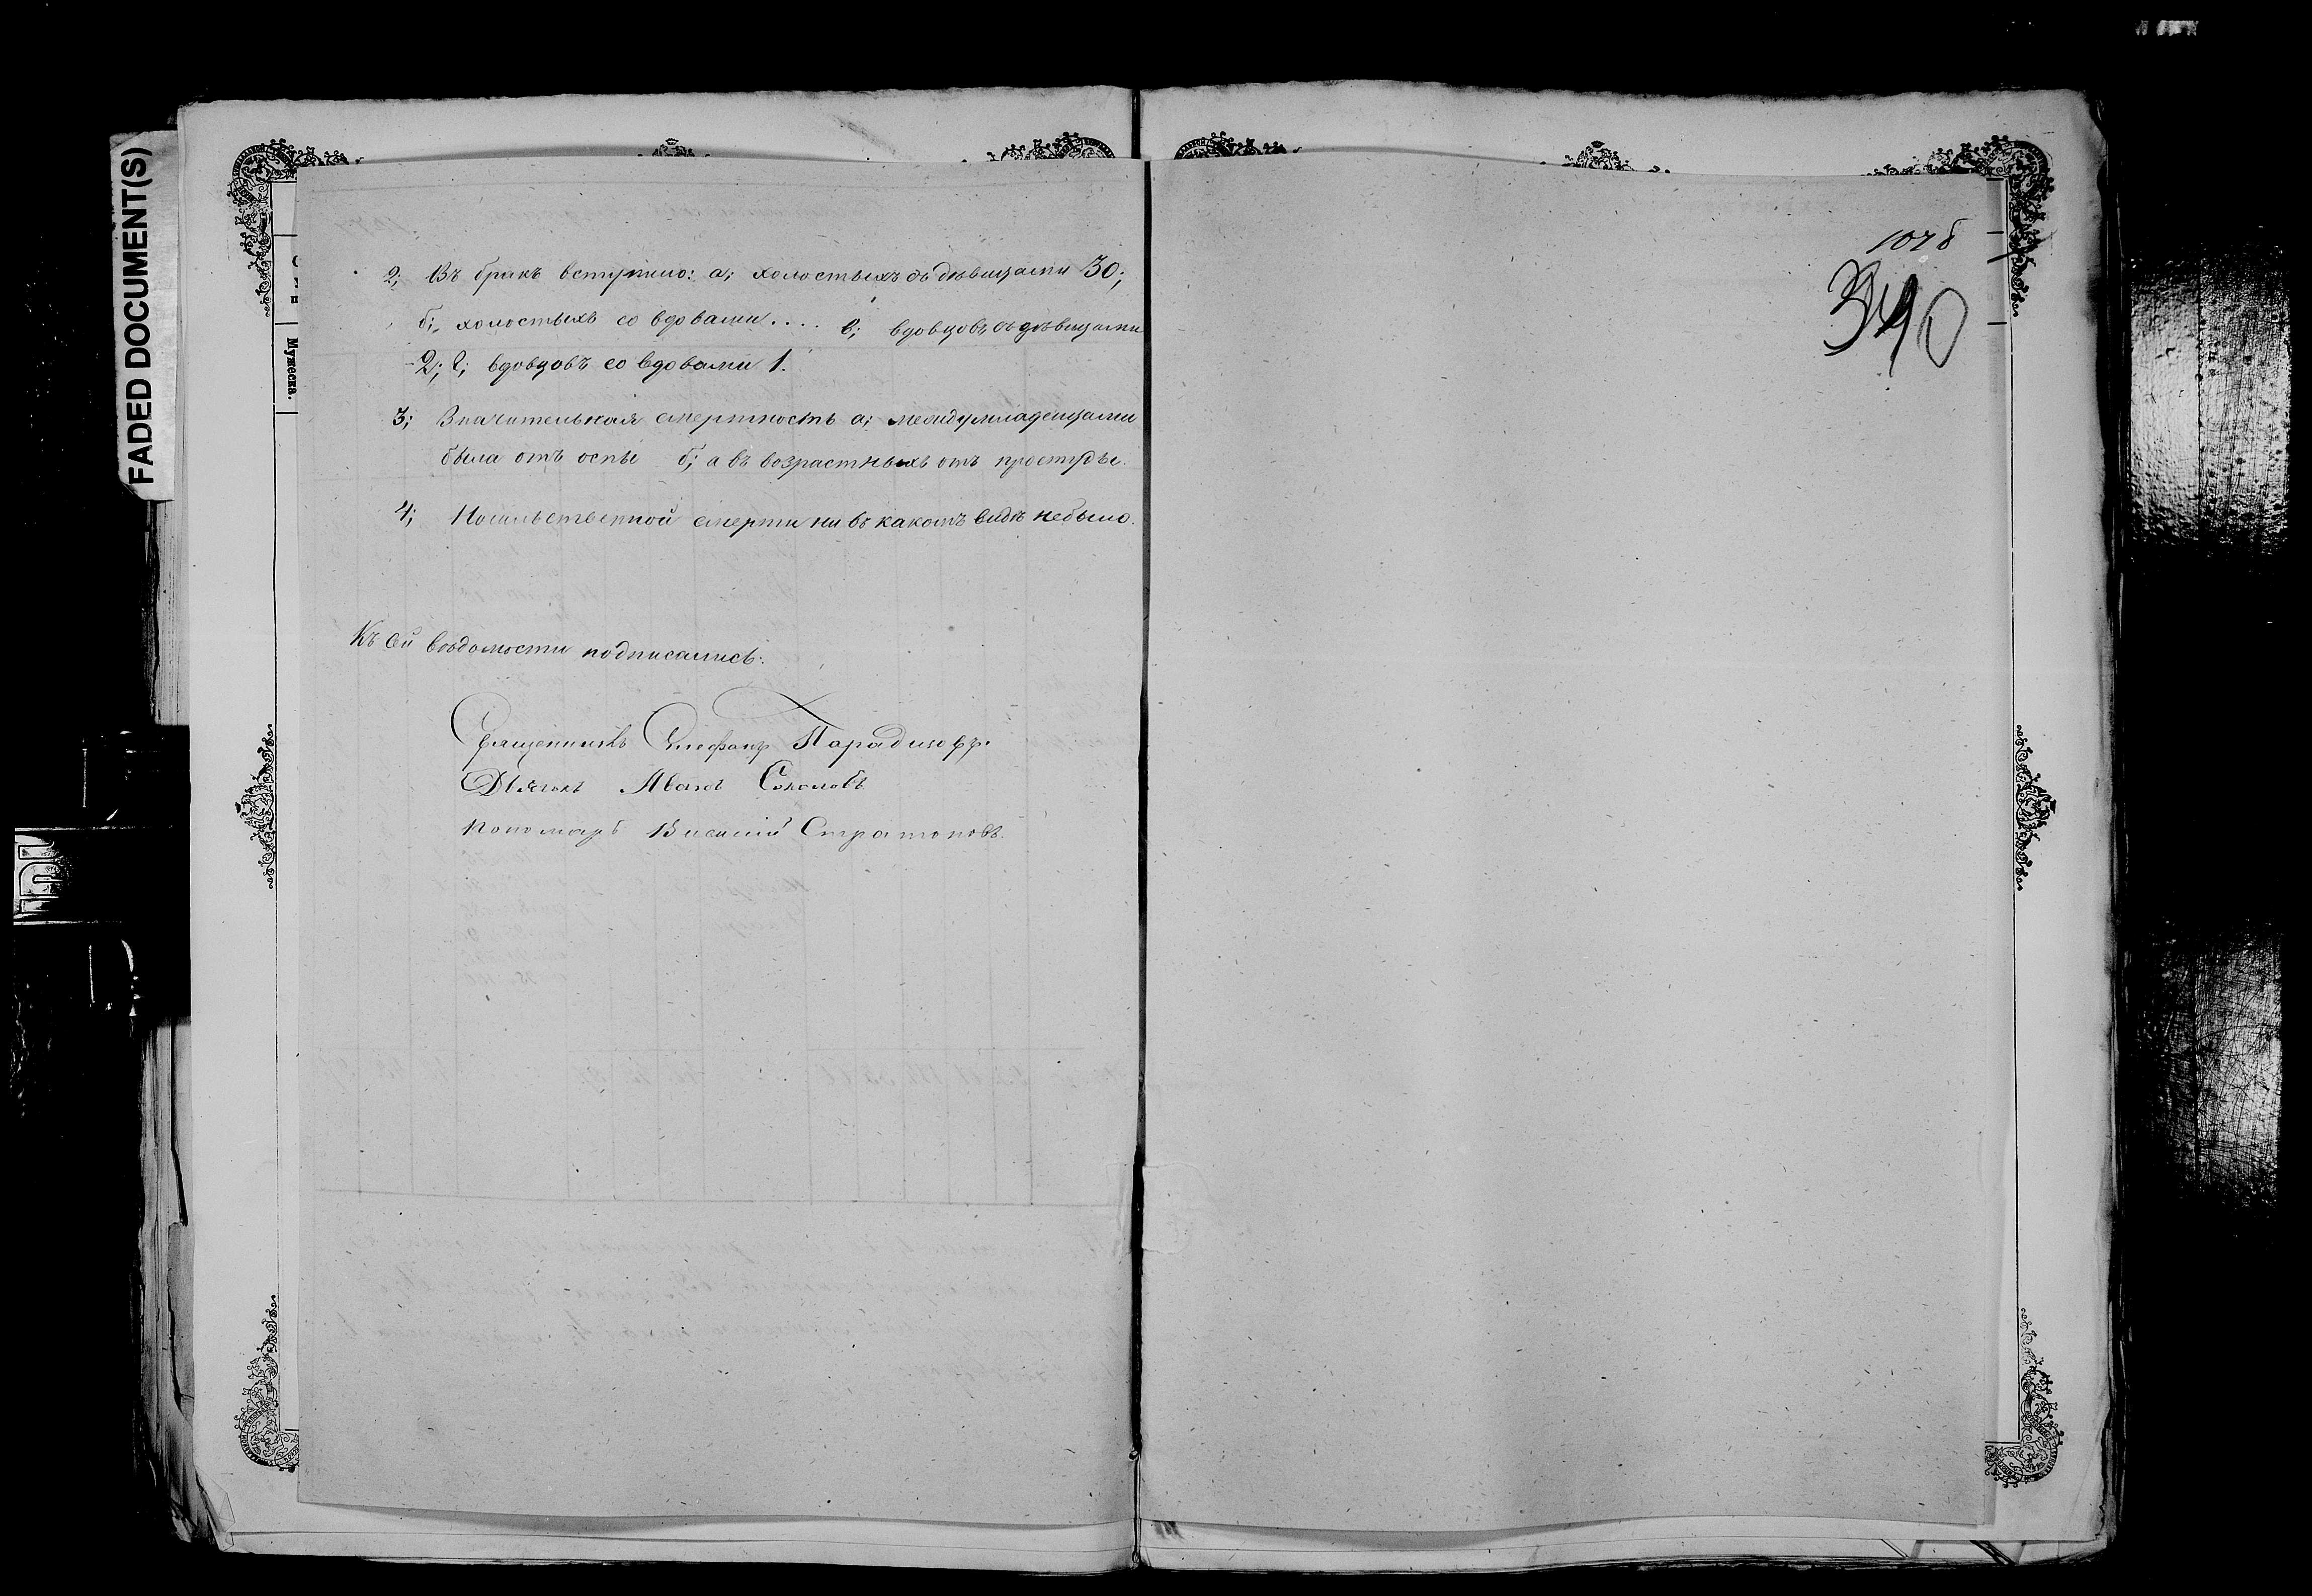 FADED DOCUMENT(S)
Мужеска.
2; Въ бракъ вступило: а; холостыхъ съ дѣвицами 30;
б; холостыхъ со вдовами.... в; вдовцовъ съ дѣвицами
-2; г; вдовцовъ со вдовами 1.
3; Значительная смертность а; между младенцами
была отъ оспы б; а въ возрастныхъ отъ простуды.
4; Насильственной смерти ни въ какомъ видѣ небыло.
Къ сей вѣдомости подписались:
Священникъ Стефанъ Парадизовъ.
Дьячокъ Иванъ Соколовъ
Пономарь Василий Стратоновъ.
340